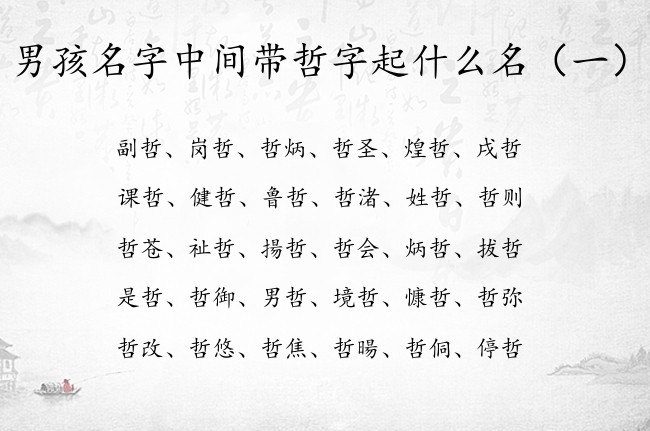 男孩名字中间带哲字起什么名（一）
副哲、岗哲、哲炳、哲圣、煌哲、戌哲
课哲、健哲、鲁哲、哲渚、姓哲、哲则
哲苍、祉哲、揚哲、哲会、炳哲、拔哲
是哲、哲御、男哲、境哲、慷哲、哲弥
哲改、哲悠、哲焦、哲暘、哲侗、停哲